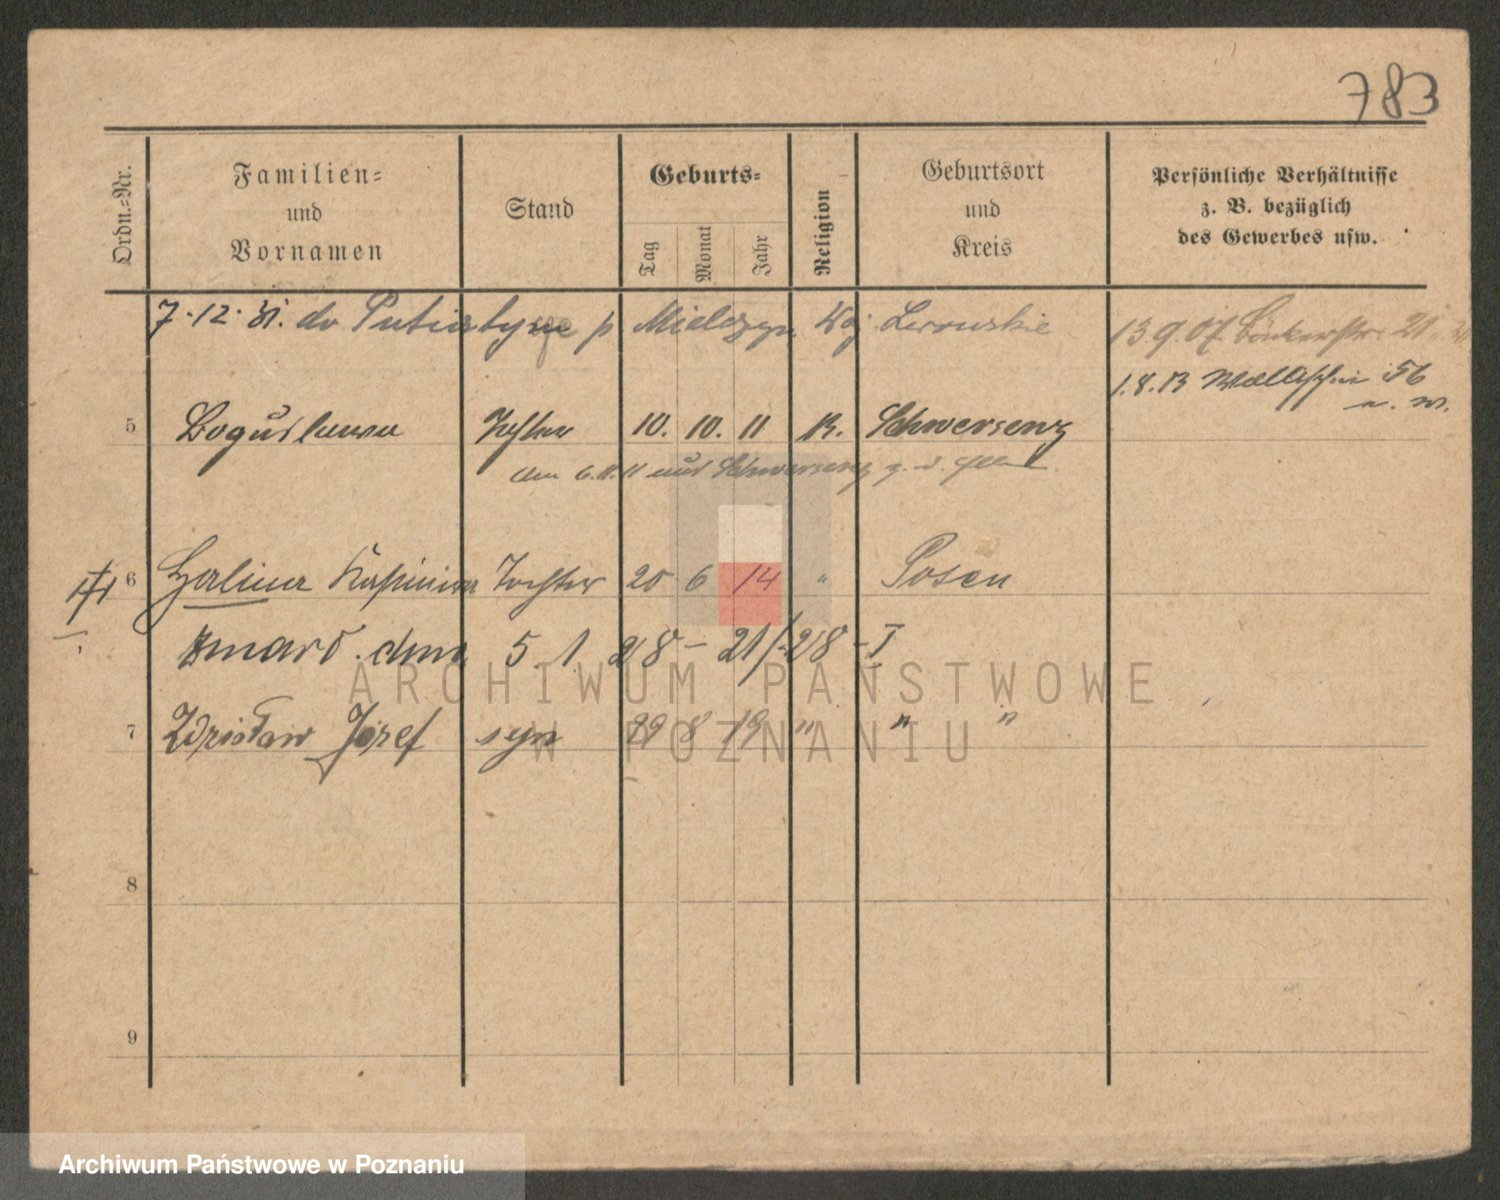 783
Ordn.-Nr.
Familien- und Vornamen
Stand
Geburts-
Tag
Monat
Jahr
Religion
Geburtsort und Kreis
Persönliche Verhältnisse
z. B. bezüglich
des Gewerbes usw.
7.12.31. do p Mielczyn
13 9. 07 21
1.8.13 Wallischei 56
5 Boguslawa Tochter 10. 10. 11 Schwersenz
6.11.11 aus Schwersenz
6 Halina Tochter 20 6 14 " Posen
5. 1. 28 - 28 - I
7 Zdzisław Józef syn 29 8 19 " " "
8
9
ARCHIWUM PAŃSTWOWE
W POZNANIU
Archiwum Państwowe w Poznaniu